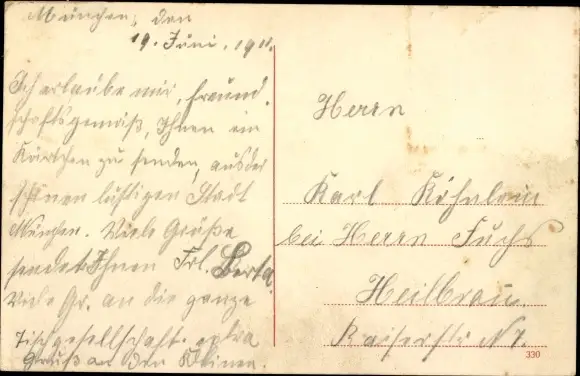 München, den
19. Juni, 1911.
Ich erlaube mir, freund.
schaftsgemäß, Ihnen ein
Kärtchen zu senden, aus der
schönen lustigen Stadt
München. Viele Grüße
sendet Ihnen Frl. Berta.
Viele Gr. an die ganze
Tischgesellschaft. extra
Gruß an den
Herrn
Karl
bei Herrn Fuchs
Heilbronn
Kaiserstr. N
330